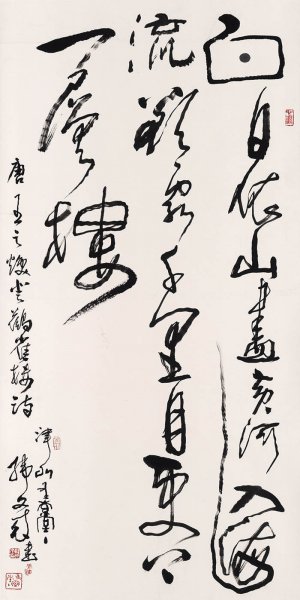 白日依山盡黃河入海
流欲窮千里目更上
一層樓
唐王之渙登鸛雀樓詩